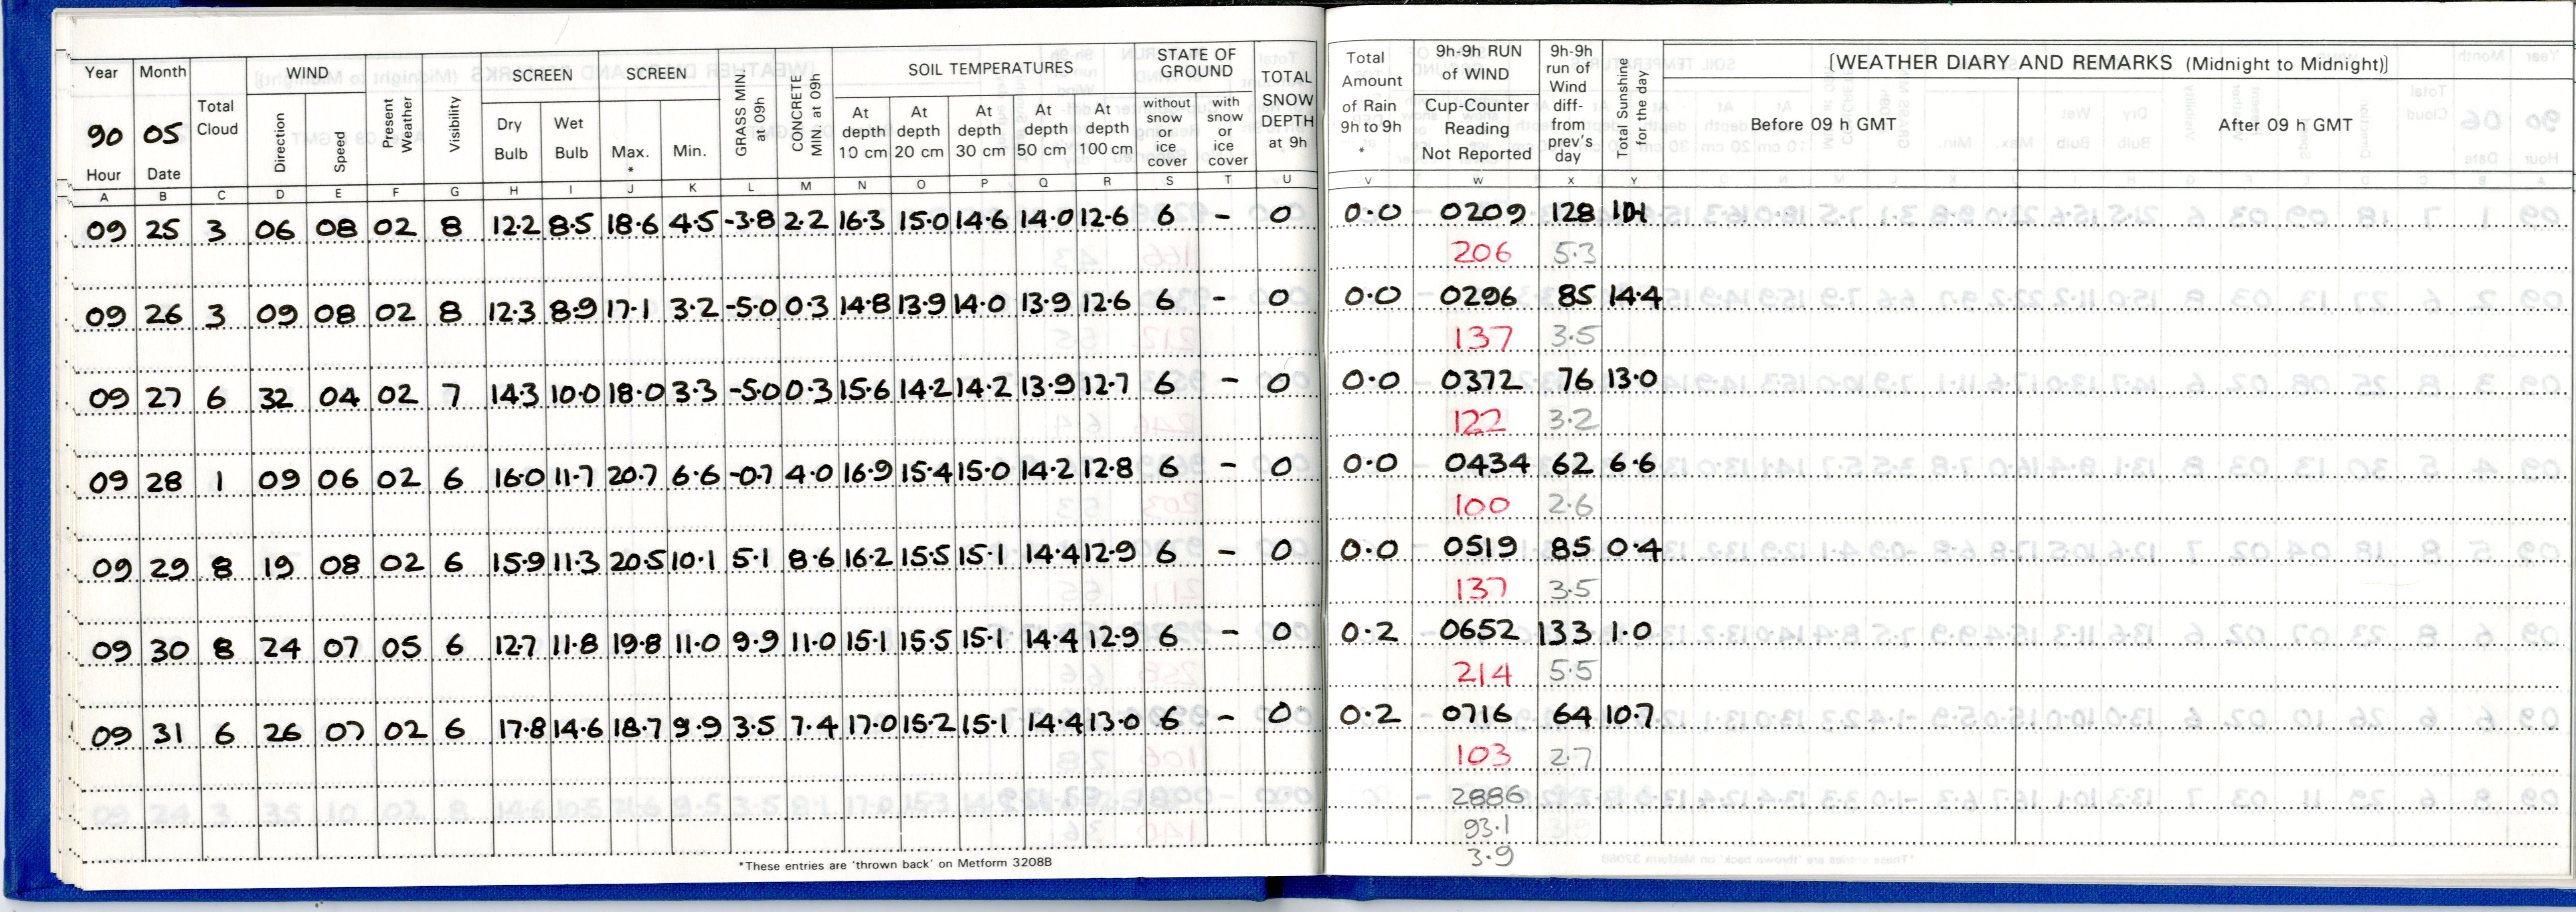 Year Month WIND SCREEN SCREEN SOIL TEMPERATURES STATE OF GROUND
90 05 Total Cloud Direction Speed Present Weather Visibility Dry Bulb Wet Bulb Max. * Min. GRASS MIN. at 09h CONCRETE MIN. at 09h At depth 10 cm At depth 20 cm At depth 30 cm At depth 50 cm At depth 100 cm without snow or ice cover with snow or ice cover TOTAL SNOW DEPTH at 9h
Hour Date
A B C D E F G H I J K L M N O P Q R S T U
09 25 3 06 08 02 8 12.2 8.5 18.6 4.5 -3.8 2.2 16.3 15.0 14.6 14.0 12.6 6 - 0
09 26 3 09 08 02 8 12.3 8.9 17.1 3.2 -5.0 0.3 14.8 13.9 14.0 13.9 12.6 6 - 0
09 27 6 32 04 02 7 14.3 10.0 18.0 3.3 -5.0 0.3 15.6 14.2 14.2 13.9 12.7 6 - 0
09 28 1 09 06 02 6 16.0 11.7 20.7 6.6 -0.7 4.0 16.9 15.4 15.0 14.2 12.8 6 - 0
09 29 8 19 08 02 6 15.9 11.3 20.5 10.1 5.1 8.6 16.2 15.5 15.1 14.4 12.9 6 - 0
09 30 8 24 07 05 6 12.7 11.8 19.8 11.0 9.9 11.0 15.1 15.5 15.1 14.4 12.9 6 - 0
09 31 6 26 07 02 6 17.8 14.6 18.7 9.9 3.5 7.4 17.0 15.2 15.1 14.4 13.0 6 - 0
*These entries are 'thrown back' on Metform 3208B
Total Amount of Rain 9h to 9h * 9h-9h RUN of WIND Cup-Counter Reading Not Reported 9h-9h run of Wind diff- from prev's day Total Sunshine for the day [WEATHER DIARY AND REMARKS (Midnight to Midnight)]
Before 09 h GMT After 09 h GMT
V W X Y
0.0 0209 128
206 5.3
0.0 0296 85 14.4
137 3.5
0.0 0372 76 13.0
122 3.2
0.0 0434 62 6.6
100 2.6
0.0 0519 85 0.4
137 3.5
0.2 0652 133 1.0
214 5.5
0.2 0716 64 10.7
103 2.7
2886
93.1
3.9